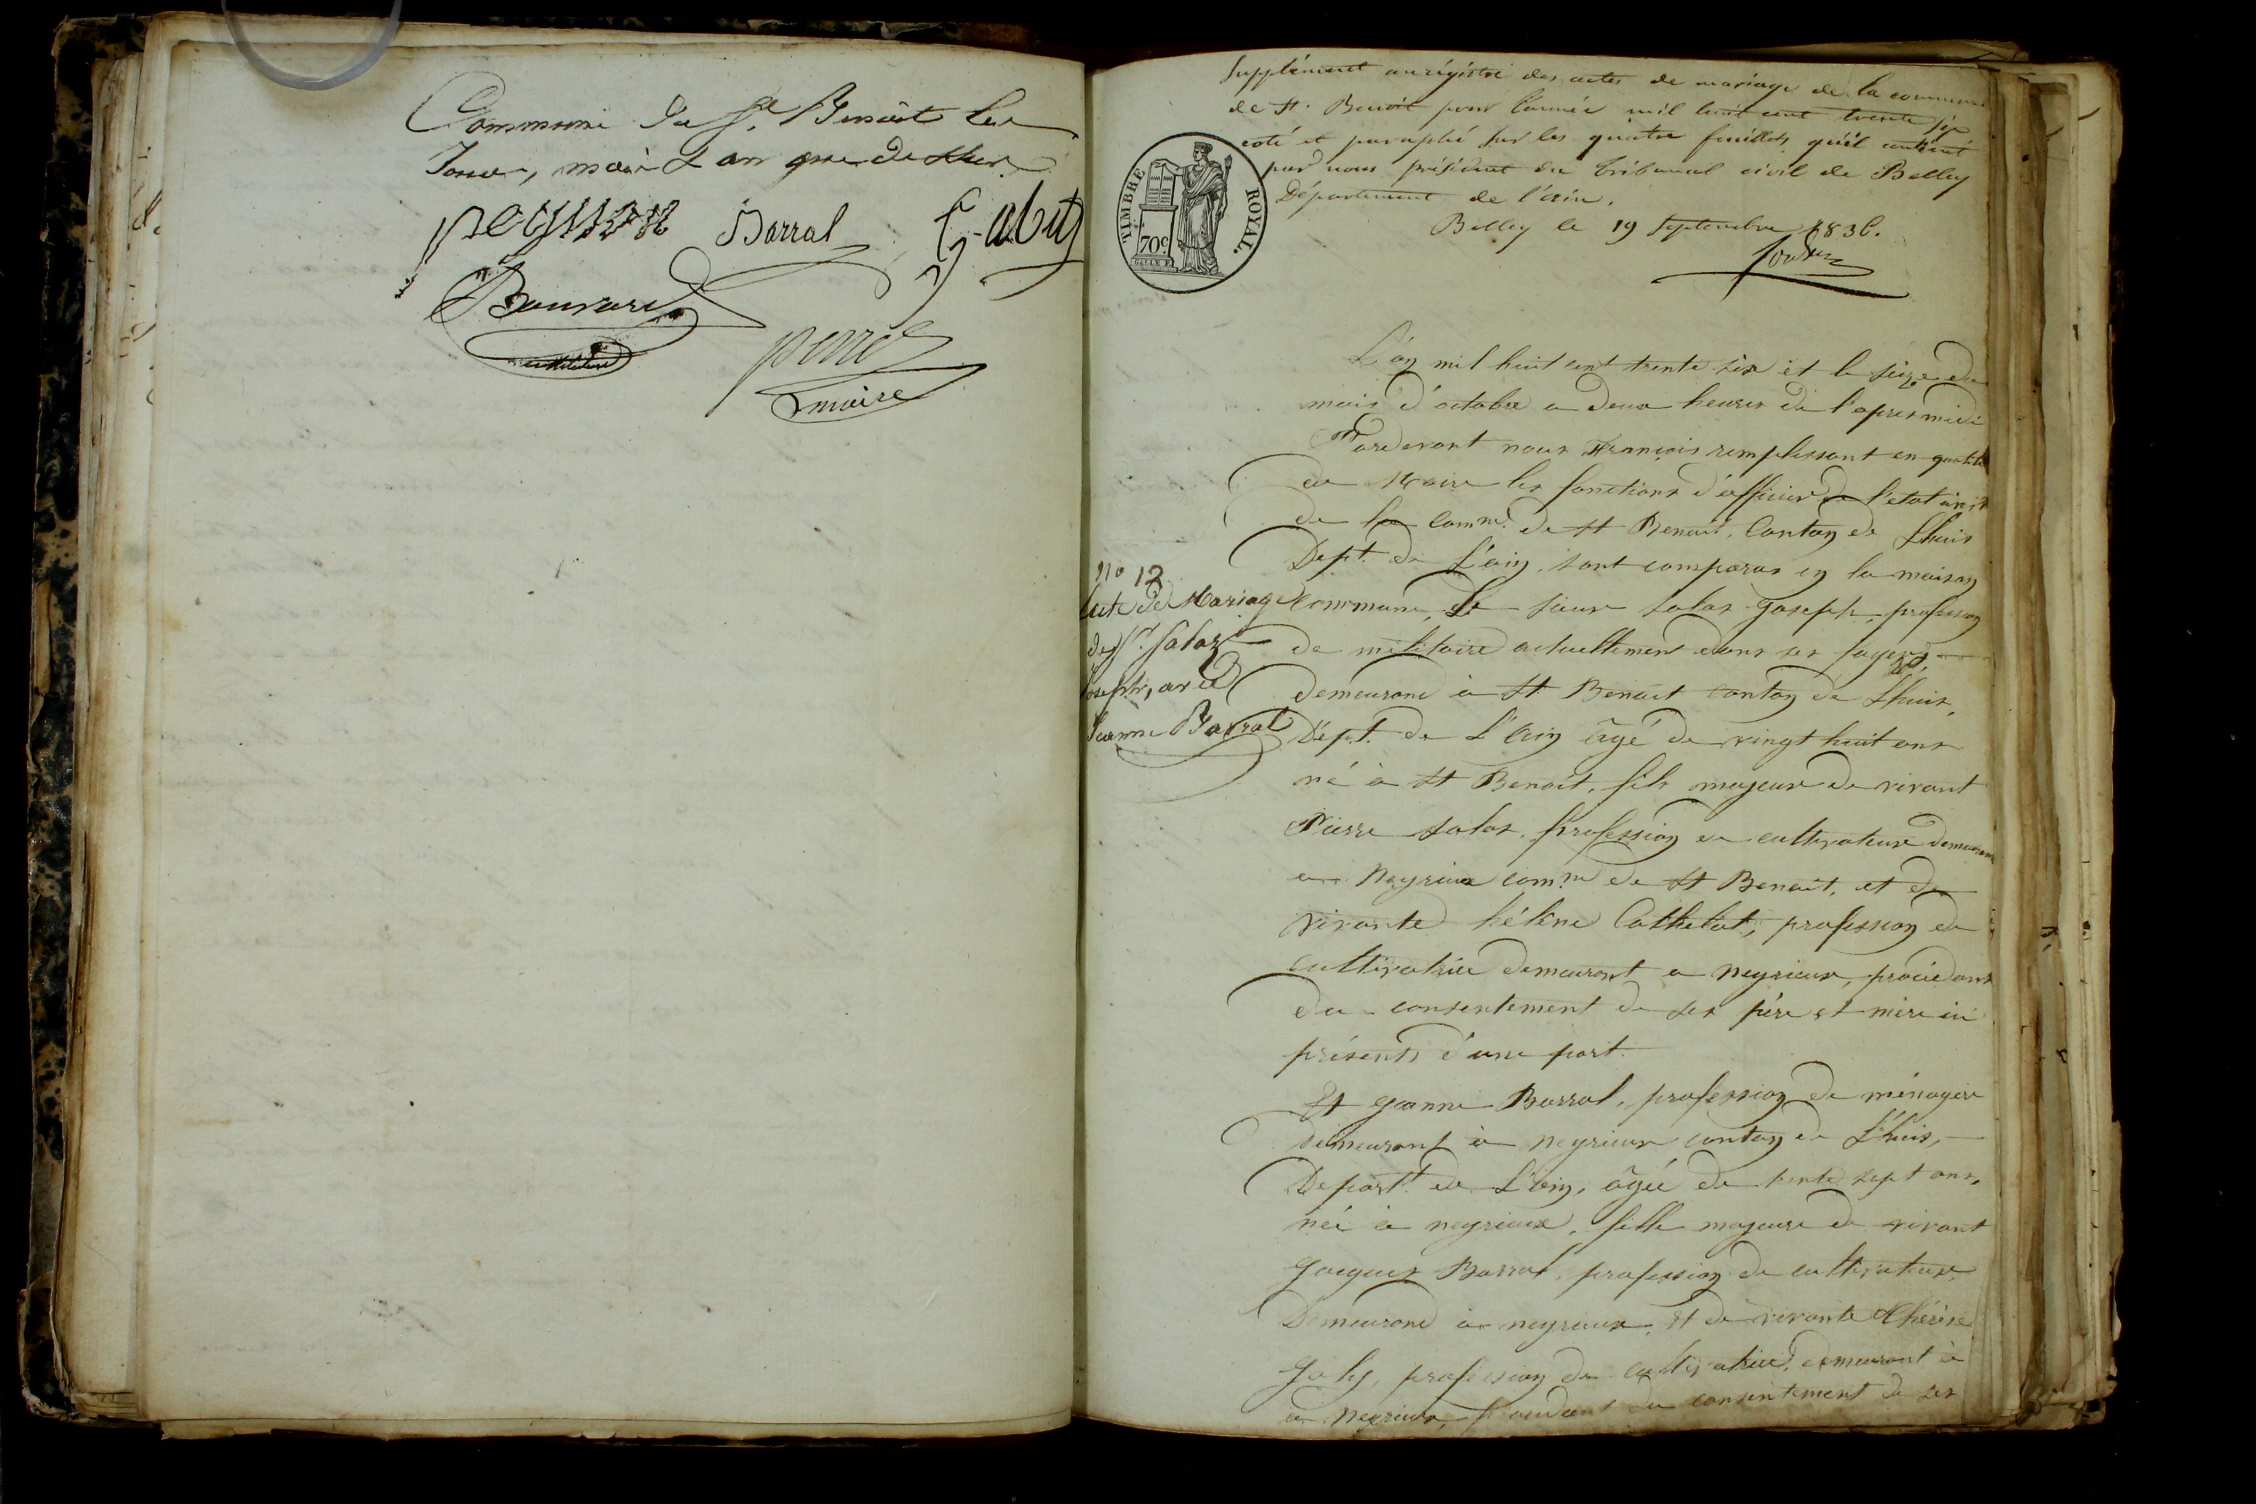 Commune de St. Benoît les
Jour, mois & an que dessus
peysson Barral Gabut
Bouvard
instituteur
perret
maire
Supplément au régistre des actes de mariage de la commune
de St. Benoit pour l'année mil huit cent trente six
coté et paraphé sur les quatre feuillets qu'il contient
par nous président du tribunal civil de Belley
Département de l'ain.
Belley le 19 Septembre 1836.
TIMBRE ROYAL.
70c.
L'an mil huit cent trente six et le seize du
mois d'octobre a deux heures de l'apres midi
Pardevant nous François remplissant en qualité
de Maire les fonctions d'officier de l'etat civil
de la Comne. de St Benoit, Canton de Lhuis
Dept. de L'ain, sont comparus en la maison
commune, Le sieur Salas Joseph, profession
de militaire actuellement dans ses foyers,
demeurand à St Benoit canton de Lhuis,
Dépt. de L'Ain âgé de vingt huit ans
né à St Benoit, fils majeur de vivant
Pierre Salas, profession de cultivateur demeurant
a Neyrieux comne de St Benoit, et de
vivante hélène Cathelat, profession de
cultivatrice demeurant a neyrieux, procédant
du consentement de ses père et mère ici
présents d'une part.
Et Jeanne Barral, profession de ménagère
demeurant à neyrieux canton de Lhuis,
Depart. de L'ain, âgée de trente sept ans,
née à neyrieux, fille majeure de vivant
Jacques Barral, profession de cultivateur,
Demeurand à neyrieux, et de vivante Thérèse
Joly, profession de cultivatrice, demeurant à
a Neyrieux, du consentement de ses
No 12
Acte de Mariage
de Sr. Salas
Joseph, avec
Jeanne Barral